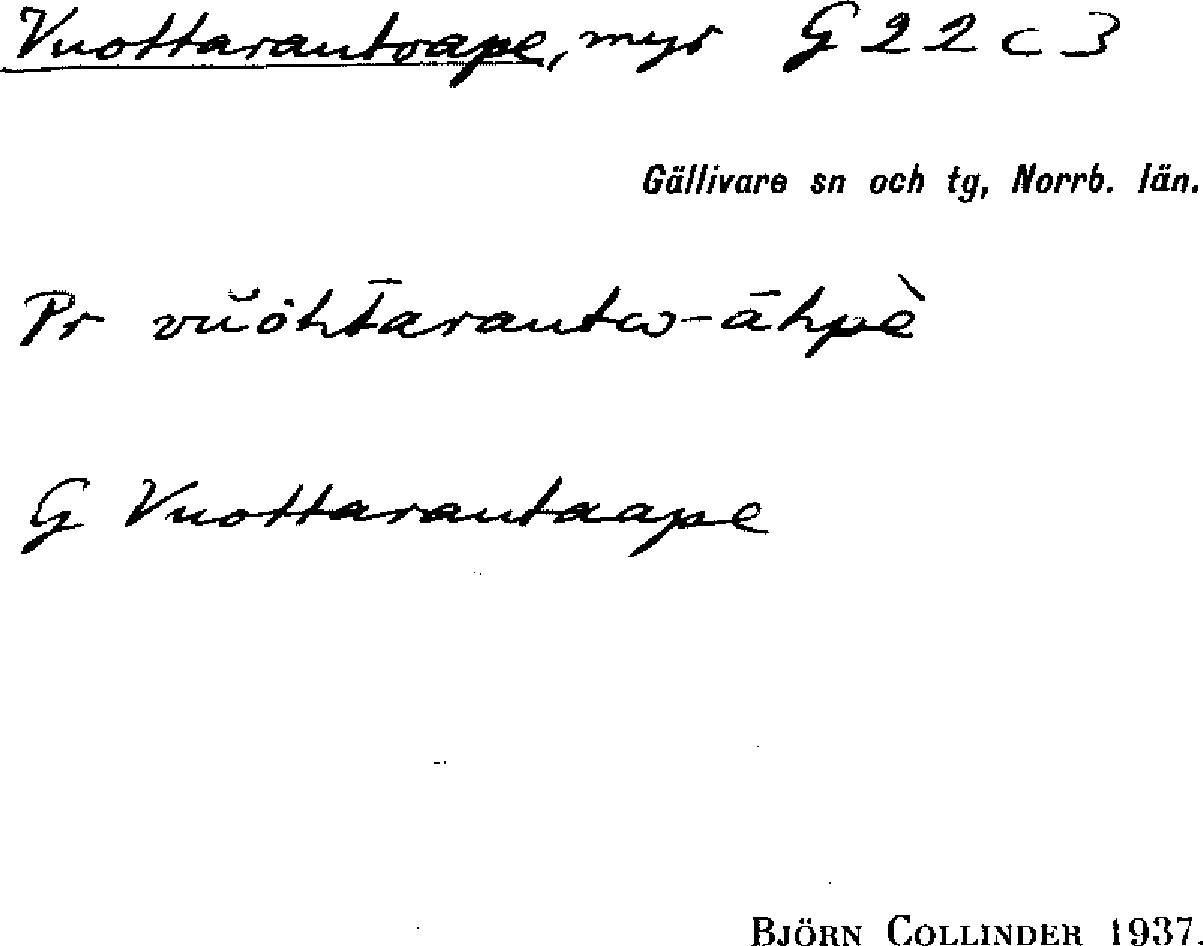 Vuottarantoape, myr G 22 c 3
Gällivare sn och tg, Norrb. län.
Pr vŭöht̄arantω-āhpè
G Vuottarantaape
BJÖRN COLLINDER 1937.